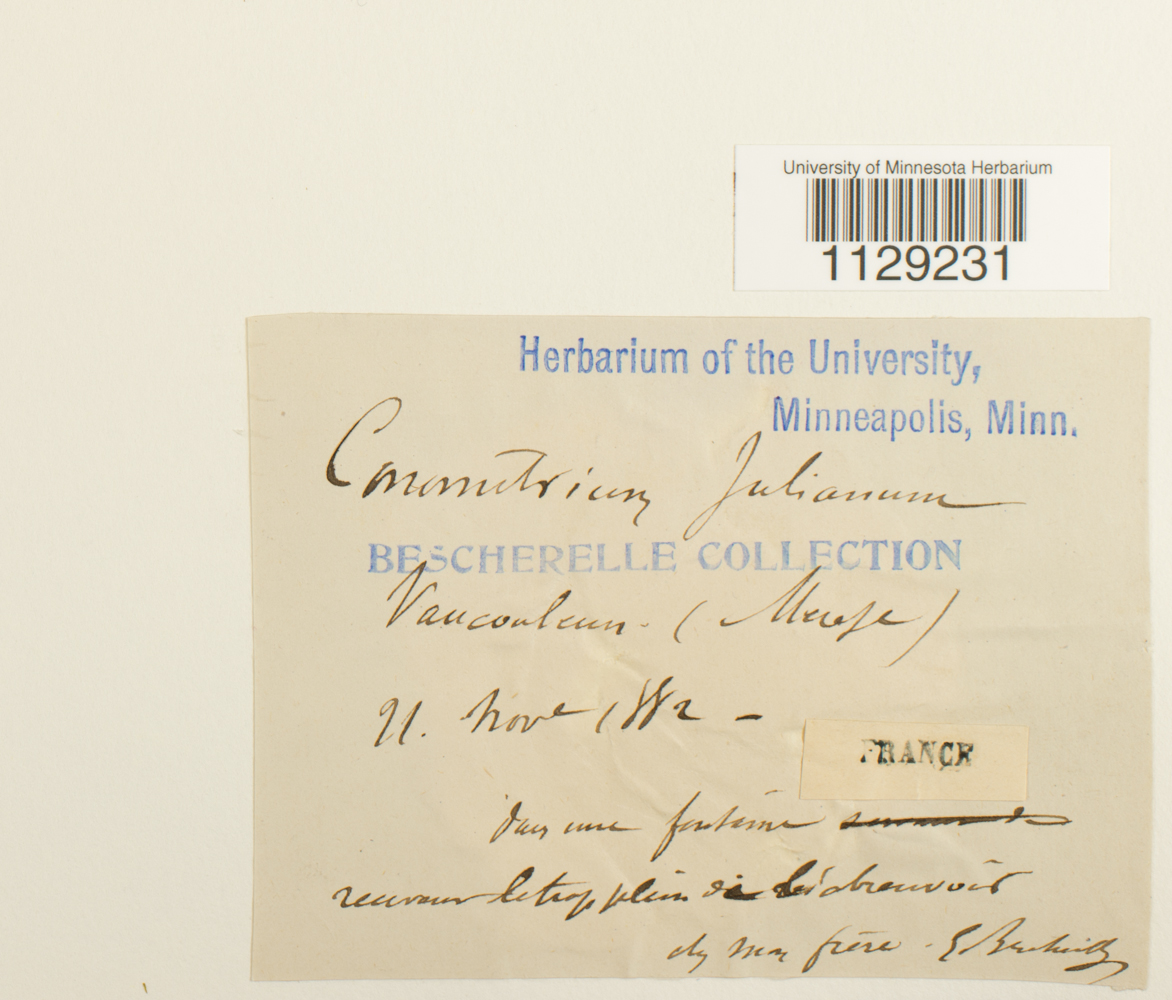 University of Minnesota Herbarium
1129231
Herbarium of the University,
Minneapolis, Minn.
Conomitrium Julianum
BESCHERELLE COLLECTION
Vaucouleurs. (Meuse)
21. Nove 1882 -
FRANCE
dans une fontaine
recevant le trop plein de l'abreuvoir
chez mon frère.